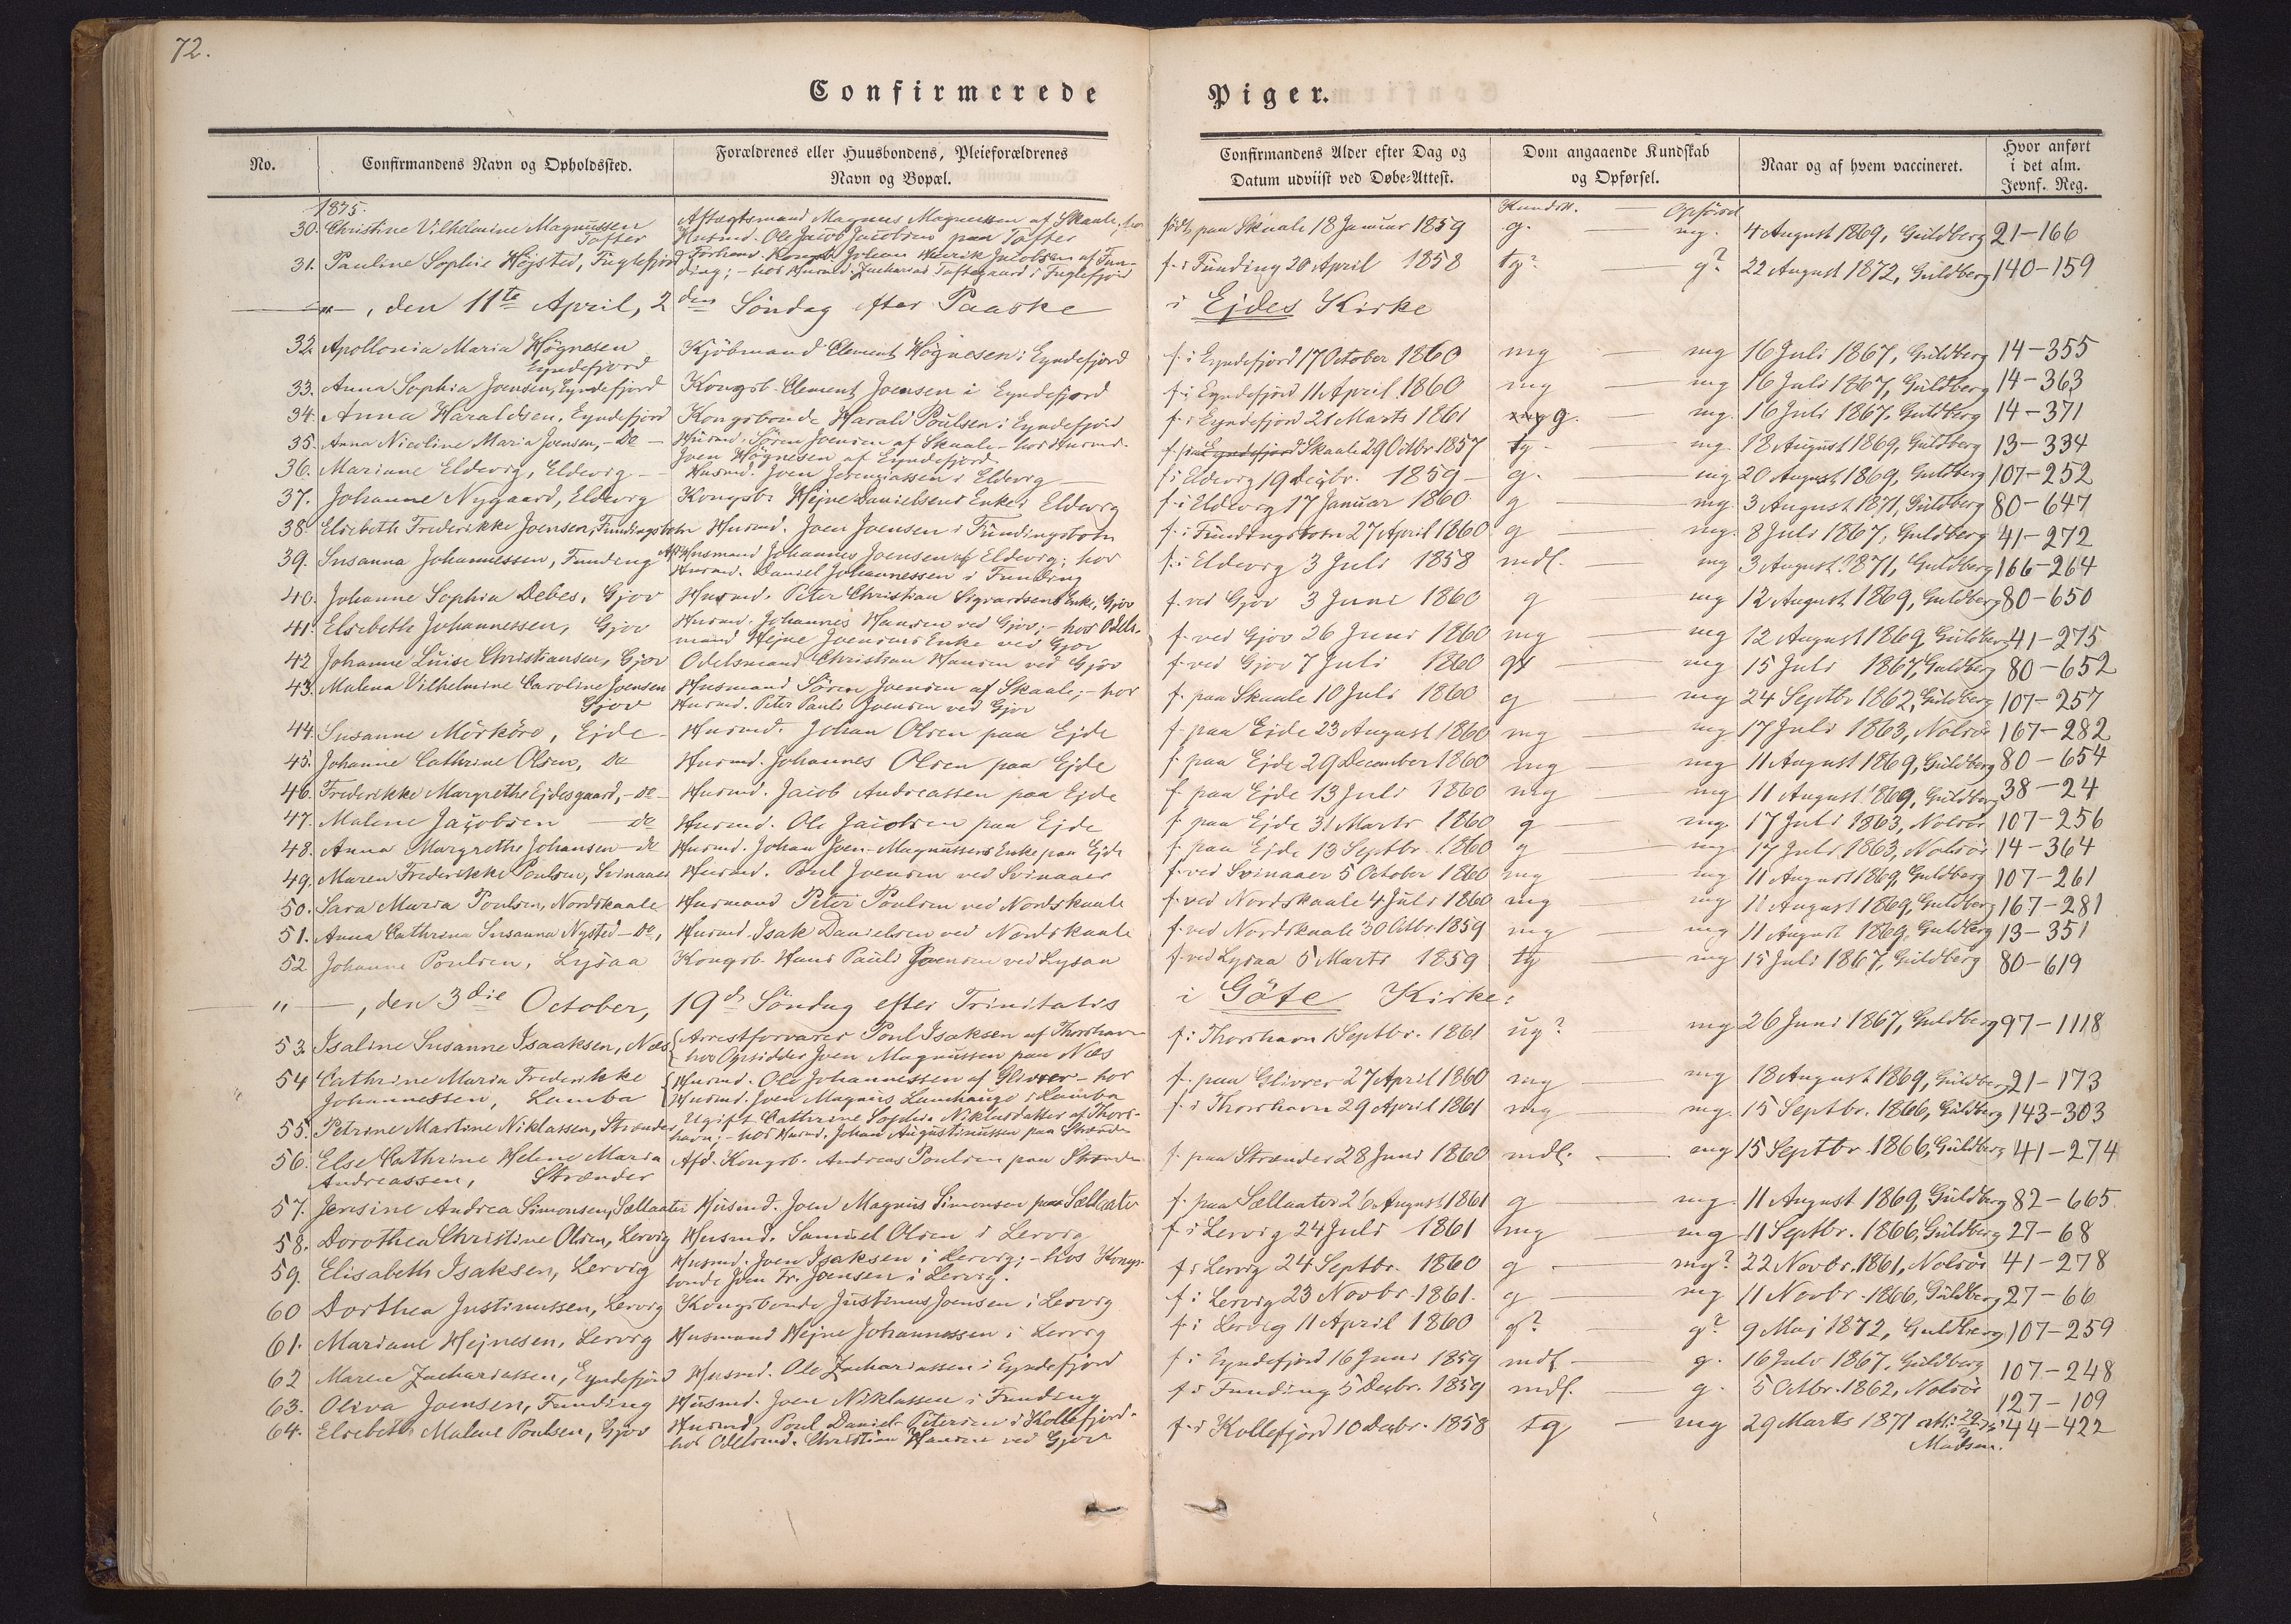 72.
Confirmerede Piger.
No.
Confirmandens Navn og Opholdssted.
Forældrenes eller Huusbondens, Pleieforældrenes
Navn og Bopæl.
Confirmandens Alder efter Dag og
Datum udviist ved Døbe-Attest.
Dom angaaende Kundskab
og Opførsel.
Naar og af hvem vaccineret.
Hvor anført
i det alm.
Jevnf. Reg.
1875. Kundsk. — Opførsel
30. Christine Vilhelmine Magnussen Tofter Aftægtsmand Magnus Magnussen af Skaale; hos
Husmd. Ole Jacob Jacobsens paa Tofter født paa Skaale 18 Januar 1859 g. — mg. 4 August 1869, Guldberg 21-166
31. Pauline Sophie Højsted, Fuglefjord Forhenv. Kongsb. Johan Henrik Jacobsen af Fun-
ding; - hos Husmd. Zacharias Toftegaard i Fuglefjord f. i Funding 20 April 1858 tg? — g? 22 August 1872, Guldberg 140-159
—"—, den 11te April, 2den Søndag efter Paaske i Ejdes Kirke
32. Apollonia Maria Høgnesen Eyndefjord Kjøbmand Clement Høgnesen i Eyndefjord f. i Eyndefjord 17 October 1860 mg — mg 16 Juli 1867, Guldberg 14-355
33. Anna Sophia Joensen, Eyndefjord Kongsb. Clement Joensen i Eyndefjord f. i Eyndefjord 11 April 1860 mg — mg 16 Juli 1867, Guldberg 14-363
34. Anna Haraldsen, Eyndefjord Kongsbonde Harald Poulsen i Eyndefjord f. i Eyndefjord 21 Marts 1861 mg g. — mg. 16 Juli 1867, Guldberg 14-371
35. Anna Nicoline Maria Joensen, - Do - Husmd. Søren Joensen af Skaale - hos Husmd.
Joen Høgnesen af Eyndefjord. f. i Eyndefjord Skaale 29 Octbr 1857 tg — mg 18 August 1869, Guldberg 13-334
36. Mariane Eldevig, Eldevig - Husmd. Joen Jeremiassen i Eldevig f. i Eldevig 19 Decbr. 1859 g. — mg 20 August 1869, Guldberg 107-252
37. Johanne Nygaard, Eldevig Kongsb. Hejne Danielsens Enke i Eldevig f. i Eldevig 17 Januar 1860 g — mg 3 August 1871, Guldberg 80-647
38. Elsebeth Frederikke Joensen, Fundingsbotn Husmd. Joen Joensen i Fundingsbotn f. i Fundingsbotn 27 April 1860 g — mg. 8 Juli 1867, Guldberg 41-272
39. Susanna Johannessen, Funding Aft. Husmand Johannes Joensen af Eldevig; hos
Husmd. Daniel Johannessen i Funding f. i Eldevig 3 Juli 1858 mdl. — mg 3 August 1871, Guldberg 166-264
40. Johanne Sophia Debes, Gjov Husmd. Peter Christian Sigvardsens Enke, Gjov f. ved Gjov 3 Juni 1860 g — mg 12 August 1869, Guldberg 80-650
41. Elsebeth Johannessen, Gjov Husmd. Johannes Hansen ved Gjov; - hos Odels-
mand Hejne Joensens Enke ved Gjov f. ved Gjov 26 Juni 1860 mg — mg 12 August 1869, Guldberg 41-275
42 Johanne Luise Christiansen, Gjov Odelsmand Christian Hansen ved Gjov f. ved Gjov 7 Juli 1860 — mg 15 Juli 1867, Guldberg 80-652
43. Malena Vilhelmine Caroline Joensen Gjov Husmand Søren Joensen af Skaale; - hos
Husmd. Peter Pauli Joensen ved Gjov f. paa Skaale 10 Juli 1860 g — mg 24 Septbr 1862, Guldberg 107-257
44. Susanne Mörköre, Ejde Husmd. Johan Olsen paa Ejde f. paa Ejde 23 August 1860 mg — mg 17 Juli 1863, Nolsöe 167-282
45. Johanne Cathrine Olsen, Do Husmd. Johannes Olsen paa Ejde f. paa Ejde 29 December 1860 mg — mg 11 August 1869, Guldberg 80-654
46. Frederikke Margrethe Ejdesgaard, - Do - Husmd. Jacob Andreassen paa Ejde f. paa Ejde 13 Juli 1860 mg — mg 11 August 1869, Guldberg 38-24
47. Malene Jacobsen - Do Husmd. Ole Jacobsen paa Ejde f. paa Ejde 31 Marts 1860 g — mg 17 Juli 1863, Nolsöe 107-256
48. Anna Margrethe Johansen - Do Husmd. Johan Joen-Magnussens Enke paa Ejde f. paa Ejde 13 Septbr. 1860 g — mg 17 Juli 1863, Nolsöe 14-364
49. Maren Frederikke Poulsen, Svinaaer Husmd. Poul Joensen ved Svinaaer f. ved Svinaaer 5 October 1860 mg — mg 11 August 1869, Guldberg 107-261
50. Sara Maria Poulsen, Nordskaale Husmand Peter Poulsen ved Nordskaale f. ved Nordskaale 4 Juli 1860 mg — mg 11 August 1869, Guldberg 167-281
51. Anna Cathrina Susanna Nysted - Do, Husmd. Isak Danielsen ved Nordskaale f. ved Nordskaale 30 Octbr. 1859 mg — mg 11 August 1869, Guldberg 13-351
52 Johanne Poulsen, Lysaa Kongsb. Hans Pauli Joensen ved Lysaa f. ved Lysaa 5 Marts 1859 tg — mg 15 Juli 1867, Guldberg 80-619
" —, den 3die October, 19de Søndag efter Trinitatis i Göte Kirke:
53. Isaline Susanne Isaaksen, Næs Arrestforvarer Poul Isaksen af Thorshavn
hos Opsidder Joen Magnussen paa Næs f. i Thorshavn 1 Septbr. 1861 ug? mg 26 Juni 1867, Guldberg 97-1118
54 Cathrine Maria Frederikke
Johannessen, Lamba Husmd. Ole Johannessen af Glivrer - hos
Husmd. Joen Magnus Lamhauge i Lamba f. paa Glivrer 27 April 1860 mg — mg 18 August 1869, Guldberg 21-173
55. Petrine Martine Niklassen, Strænder Ugift Cathrine Sophie Niklasdatter af Thors-
havn; - hos Husmd. Johan Augustinussen paa Strænder f. i Thorshavn 29 April 1861 mg — mg. 15 Septbr. 1866, Guldberg 143-303
56. Else Cathrine Helene Maria
Andreassen, Strænder Afd. Kongsb. Andreas Poulsen paa Strænder f. paa Strænder 28 Juni 1860 mdl. — mg 15 Septbr. 1866, Guldberg 41-274
57. Jensine Andrea Simonsen, Sellaater Husmd. Joen Magnus Simonsen paa Sellaater f. paa Sellaater 26 August 1861 g — mg. 11 August 1869, Guldberg 82-665
58. Dorothea Christine Olsen, Lervig Husmd. Samuel Olsen i Lervig f. i Lervig 24 Juli 1861 mg — mg 11 Septbr. 1866, Guldberg 27-68
59. Elisabeth Isaksen, Lervig Husmd. Joen Isaksen i Lervig; - hos Kongs-
bonde Joen Fr. Joensen i Lervig. f. i Lervig 24 Septbr. 1860 g — mg? 22 Novbr. 1861, Nolsöe 41-278
60 Dorthea Justinussen, Lervig Kongsbonde Justinus Joensen i Lervig f. i Lervig 23 Novbr. 1861. g — mg 11 Novbr. 1866, Guldberg 27-66
61. Mariane Hejnesen, Lervig Husmand Hejne Johannessen i Lervig f. i Lervig 11 April 1860 g? — g? 9 Maj 1872, Guldberg 107-259
62 Maren Zachariassen, Eyndefjord Husmd. Ole Zachariassen i Eyndefjord f. i Eyndefjord 16 Juni 1859 mdl — g. 16 Juli 1867, Guldberg 107-248
63. Oliva Joensen, Funding Husmd. Joen Niklassen i Funding f. i Funding 5 Decbr. 1859 mdl. — g. 5 Octbr. 1862, Nolsöe 127-109
64. Elsebeth Malene Poulsen, Gjov Husmd. Poul Daniel Petersen i Kollefjord -
hos Odelsmd. Christian Hansen ved Gjov f. i Kollefjord 10 Decbr. 1858 tg — mg 29 Marts 1871 44-422
Madsen.